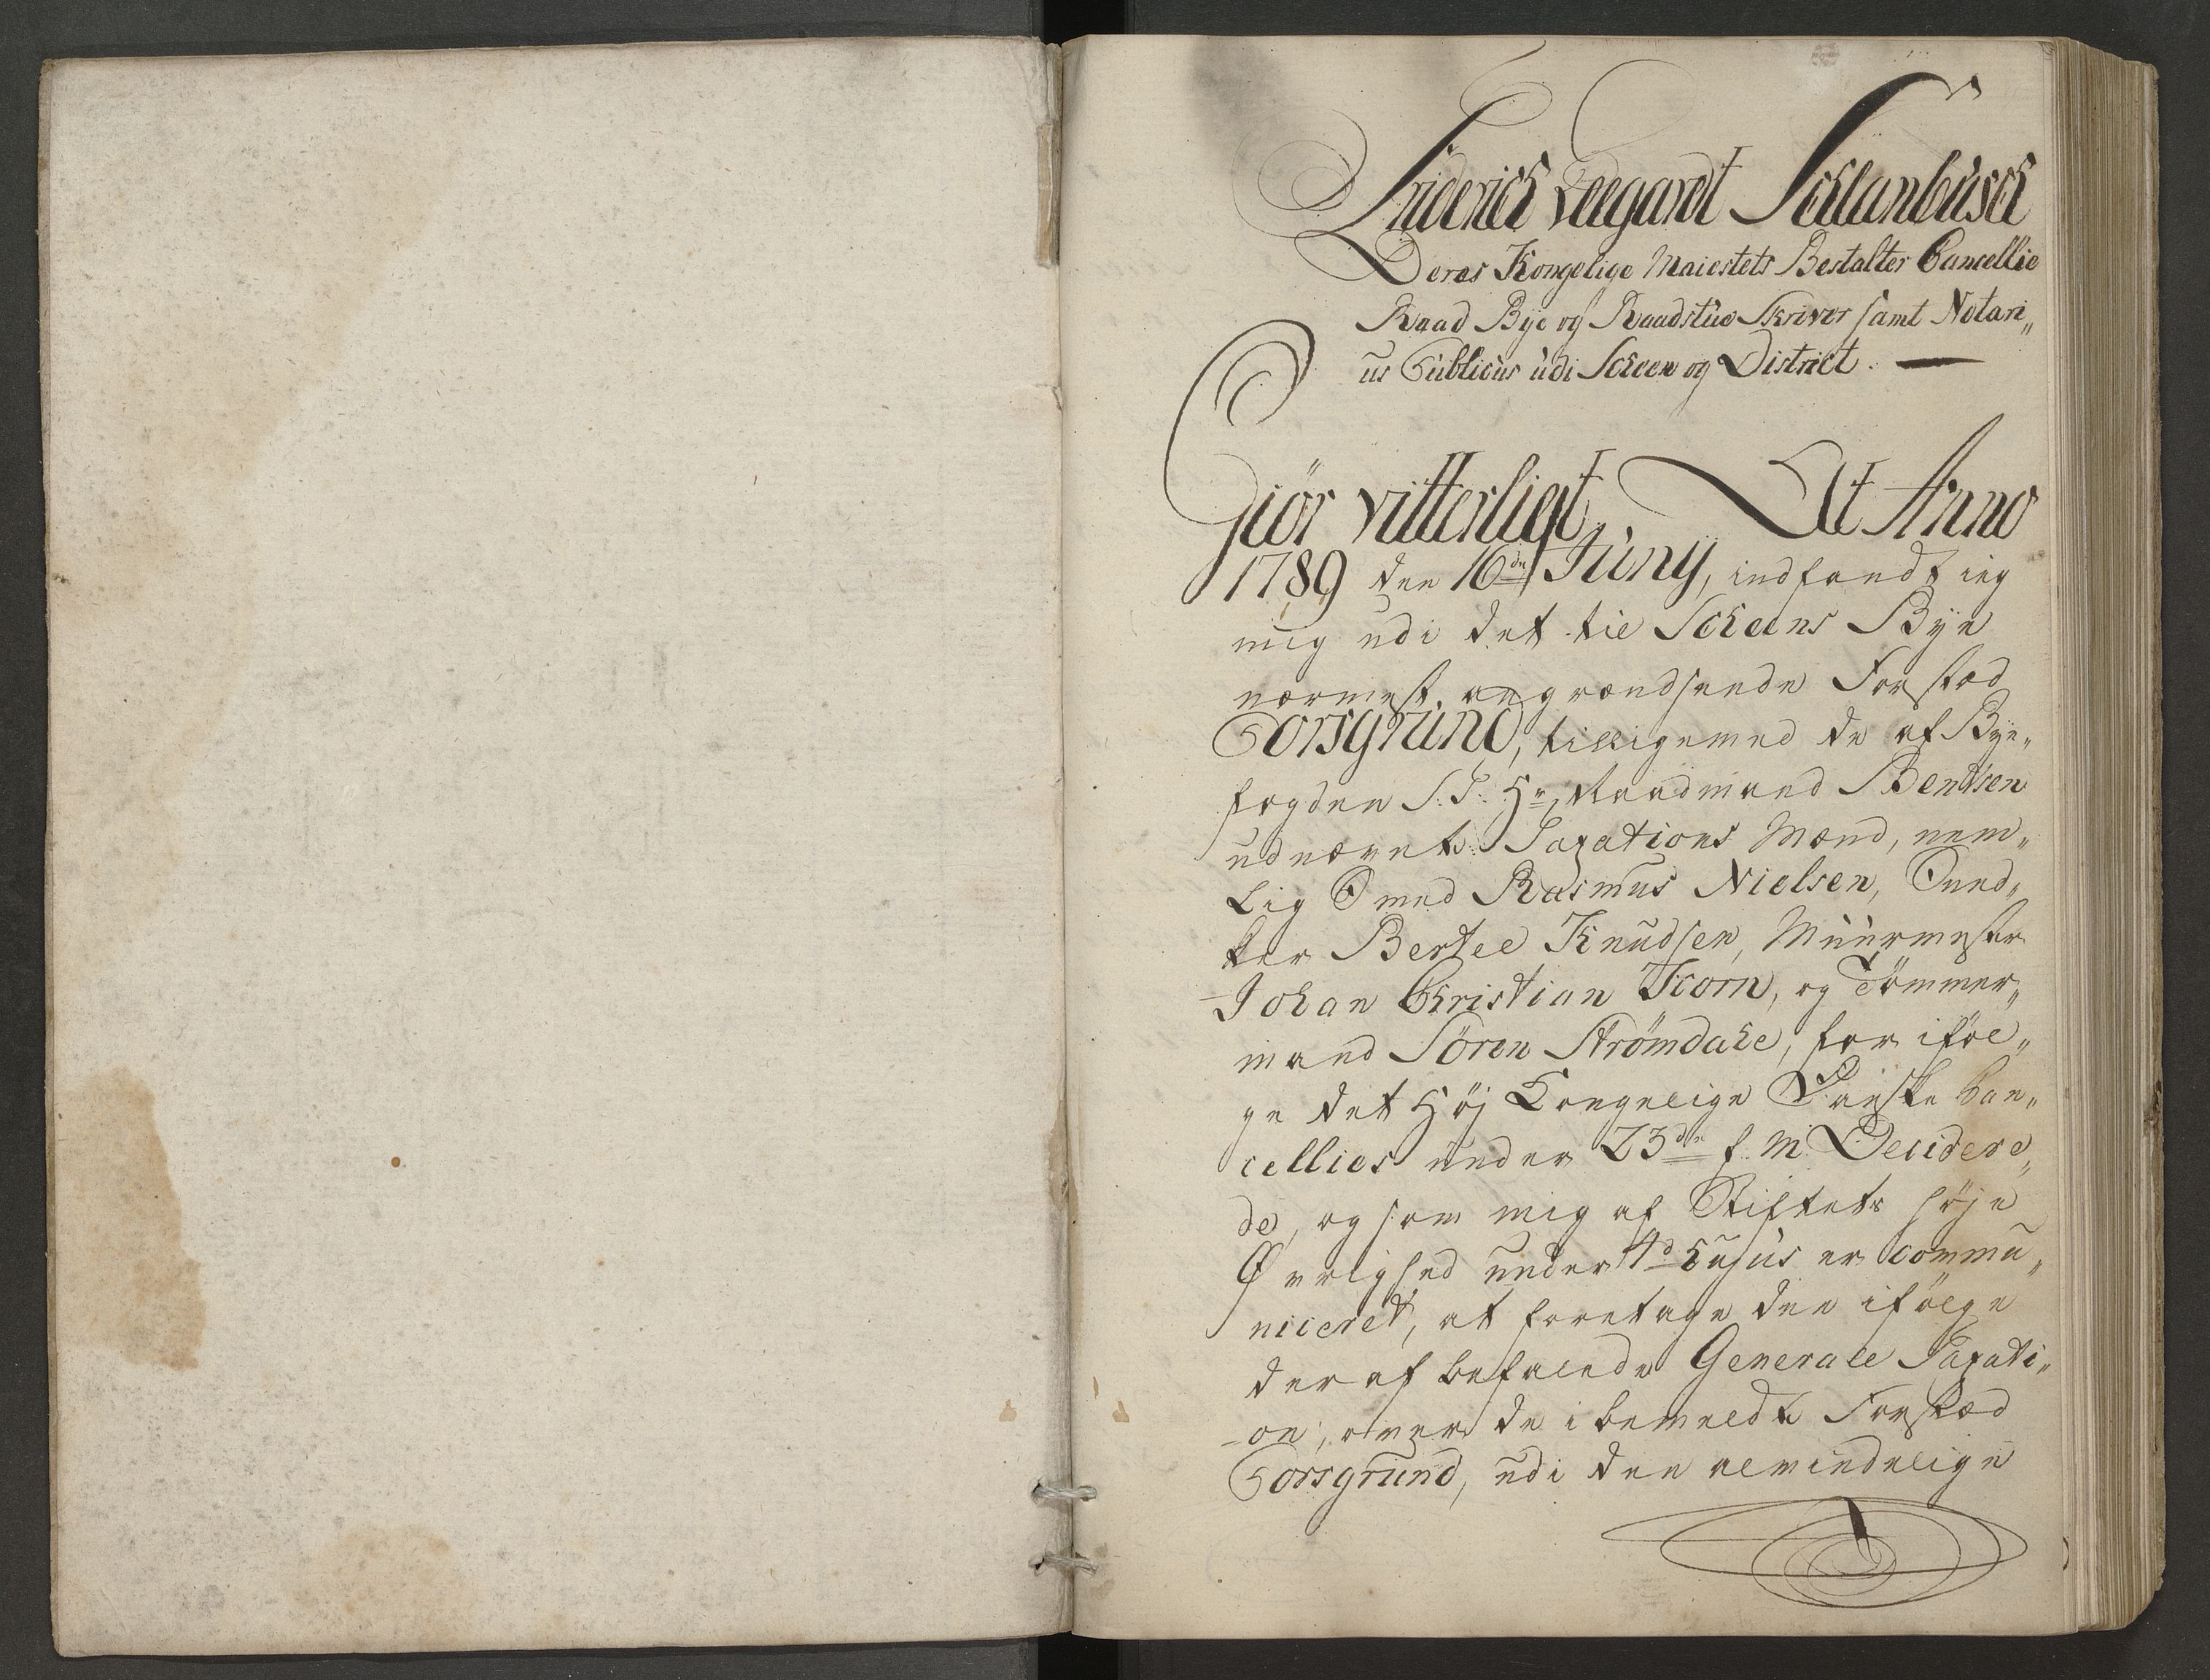 Friderich Leegardt Schlanbusch
Deres Kongelige Maiestets Bestalter Cancellie
Raad Bye og Raadstue Skriver samt Notari„
us Publicus udi Scheen og District. —
Giör vitterligt At Anno
1789 den 16de Juny, indfandt ieg
mig udi det til Scheens Bye
nærmest angrændsende Forstæd
Porsgrund, tilligemed de af Bye„
fogden S: T: Hr Raadmand Bentsen
udnævnte Taxations Mænd, nem„
lig Smed Rasmus Nielsen, Sned„
ker Bertel Knudsen, Muurmester
Johan Christian Tcorn, og Tømmer„
mand Sören Strømdahl, for iföl„
ge det Höj Kongelige Danske Can„
cellies under 23de f. M. Decidere„
de, og som mig af Stiftets höje
Øvrighed under 4d hujus er commu„
niceret, at foretage den ifölge
deraf befalede Generale Taxati„
on, over de i bemeldte Forstæd
Porsgrund, udi den almindelige